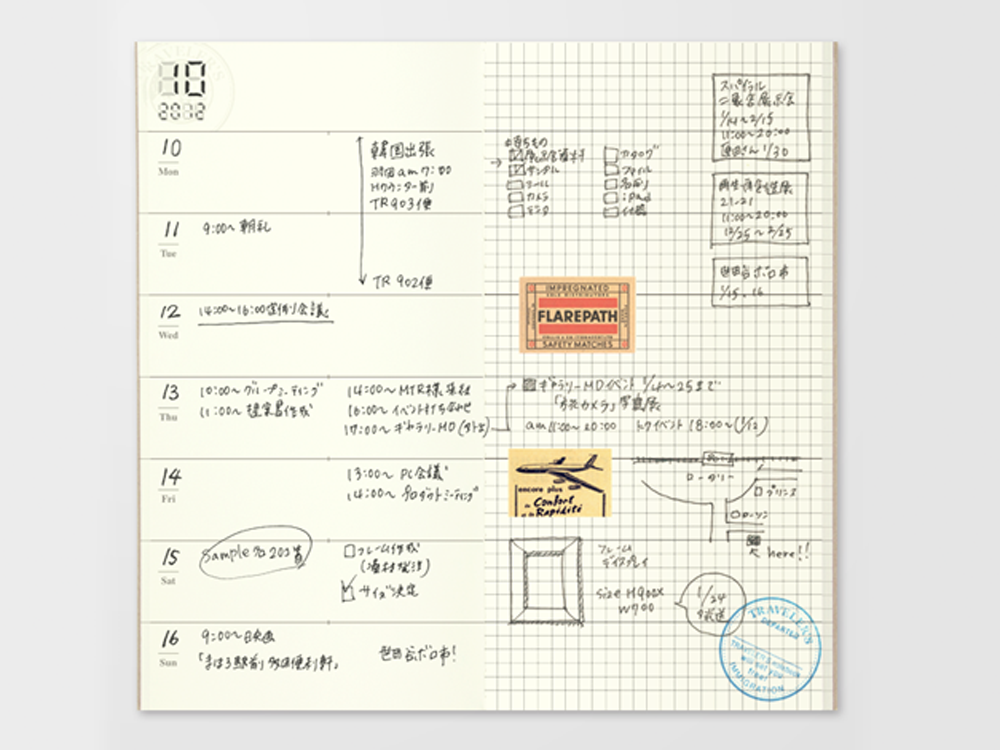 10
2012
10
Mon
韓国出張
羽田am7:00
Hカウンター前
TR903便
TR902便
11
Tue
9:00～ 朝礼
12
Wed
14:00～16:00定例会議
13
Thu
10:00～ グループミーティング
11:00～ 提案書作成
14:00～ MTR様来社
16:00～ イベント打ち合わせ
17:00～ ギャラリーMD
14
Fri
13:00～ PC会議
14:00～ プロダクトミーティング
15
Sat
Sample
フレーム作成
サイズ決定
16
Sun
9:00～ 映画
「まほろ駅前多田便利軒」
世田谷ボロ市!
持ちもの
サンプル
ツール
カメラ
カタログ
ファイル
名刺
iPad
スパイラル
1/14～2/15
11:00～20:00
1/30
21-21
11:00～20:00
12/25～2/25
世田谷ボロ市
1/15.16
IMPREGNATED
SOLE DISTRIBUTORS
FLAREPATH
SAFETY MATCHES
ギャラリーMDイベント 1/14～25まで
カメラ」写真展
am11:00～20:00 イベント 18:00～(1/12)
encore plus
de Confort
et de Rapidité
ロータリー
プリンス
ローソン
here!!
フレーム
ディスプレイ
size H900×
W700
1/24
放送
TRAVELER'S
DEPARTED
IMMIGRATION